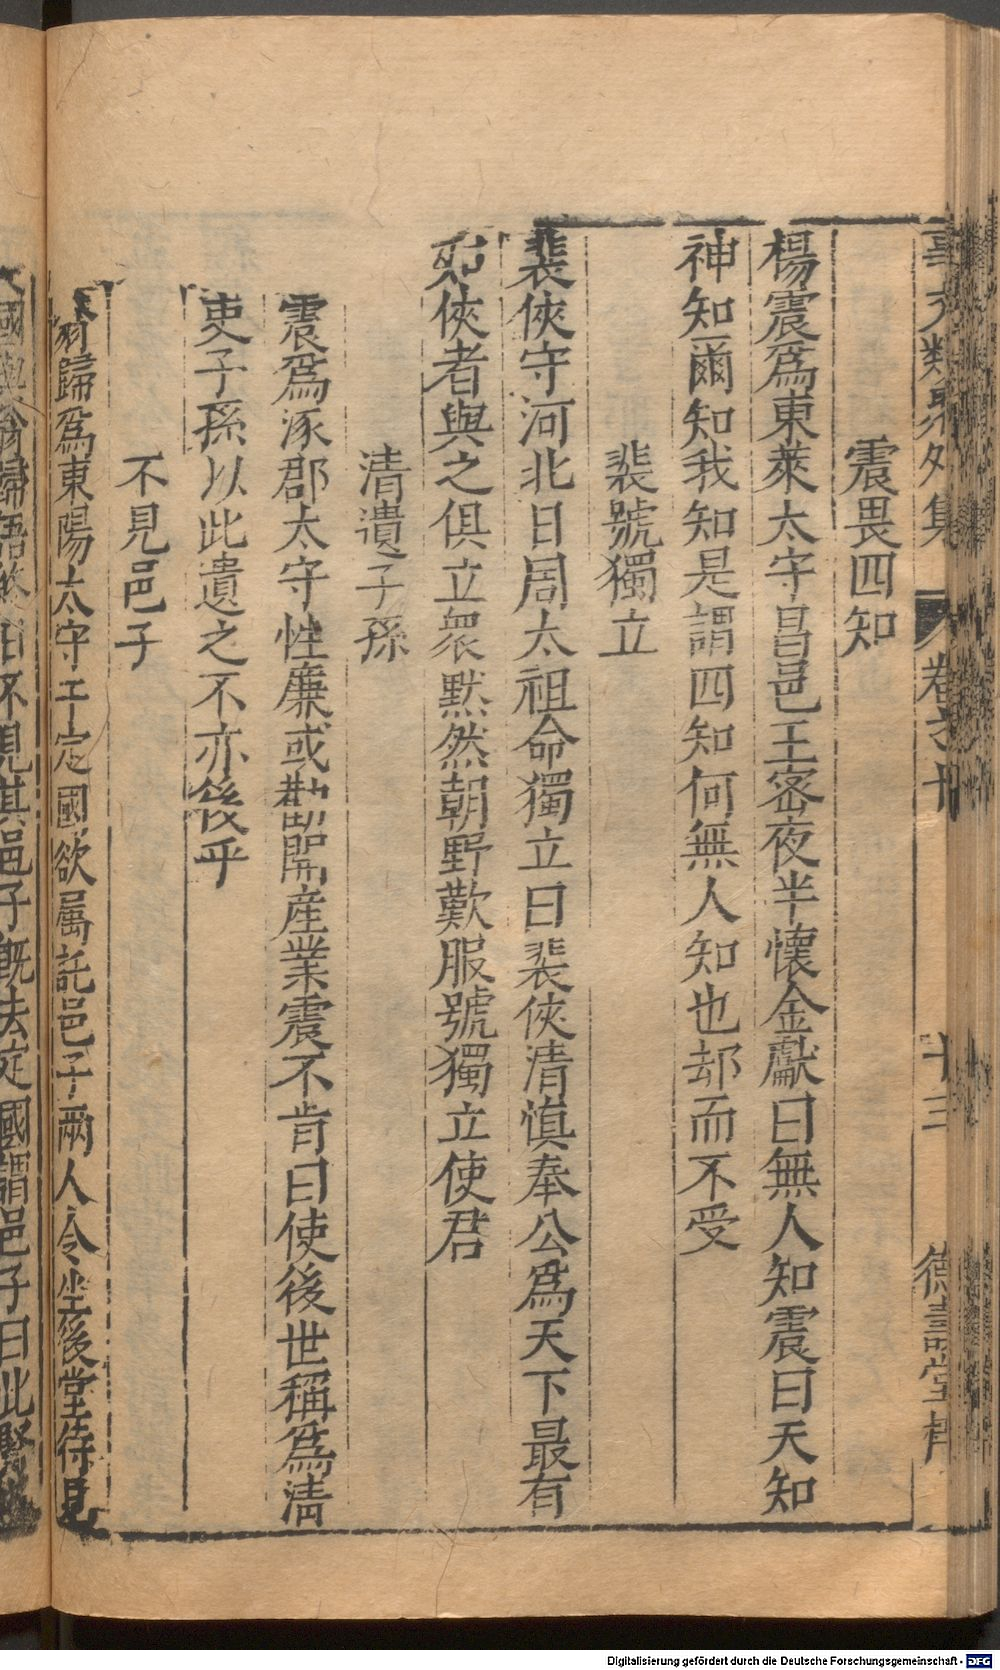 事文類聚外集 卷之十 十三 德壽堂梓
震畏四知
楊震爲東萊太守昌邑王密夜半懷金獻曰無人知震曰天知
神知爾知我知是謂四知何無人知也却而不受
裴號獨立
裴俠守河北日周太祖命獨立曰裴俠清慎奉公爲天下最有
如俠者與之俱立衆默然朝野歎服號獨立使君
清遺子孫
震爲涿郡太守性廉或勸開産業震不肯曰使後世稱爲清
吏子孫以此遺之不亦後乎
不見邑子
歸爲東陽太守于定國欲属託邑子兩人令坐後堂待見
國與翁歸語終日不見其邑子既去定國謂邑子曰此賢
Digitalisierung gefördert durch die Deutsche Forschungsgemeinschaft - DFG